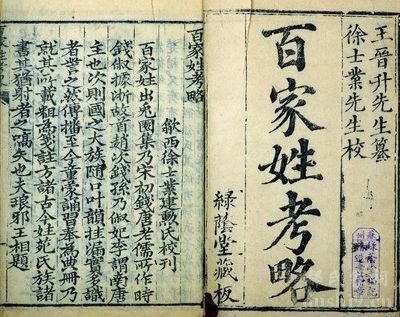 王晉升先生纂
徐士業先生校
百家姓考略
綠蔭堂藏板
百家姓考略
歙西徐士業建勳氏校刊
百家姓出兎園集乃宋初錢唐老儒所作時
錢俶據浙故首趙次錢孫乃俶妃李謂南唐
主也次則國之大族隨口叶韻挂漏實多識
者訾之然傳播至今童蒙誦習奉為典冊乃
就其所載粗為箋註方諸古今姓苑氏族諸
書其猶射者之嚆矢也夫琅邪王相題